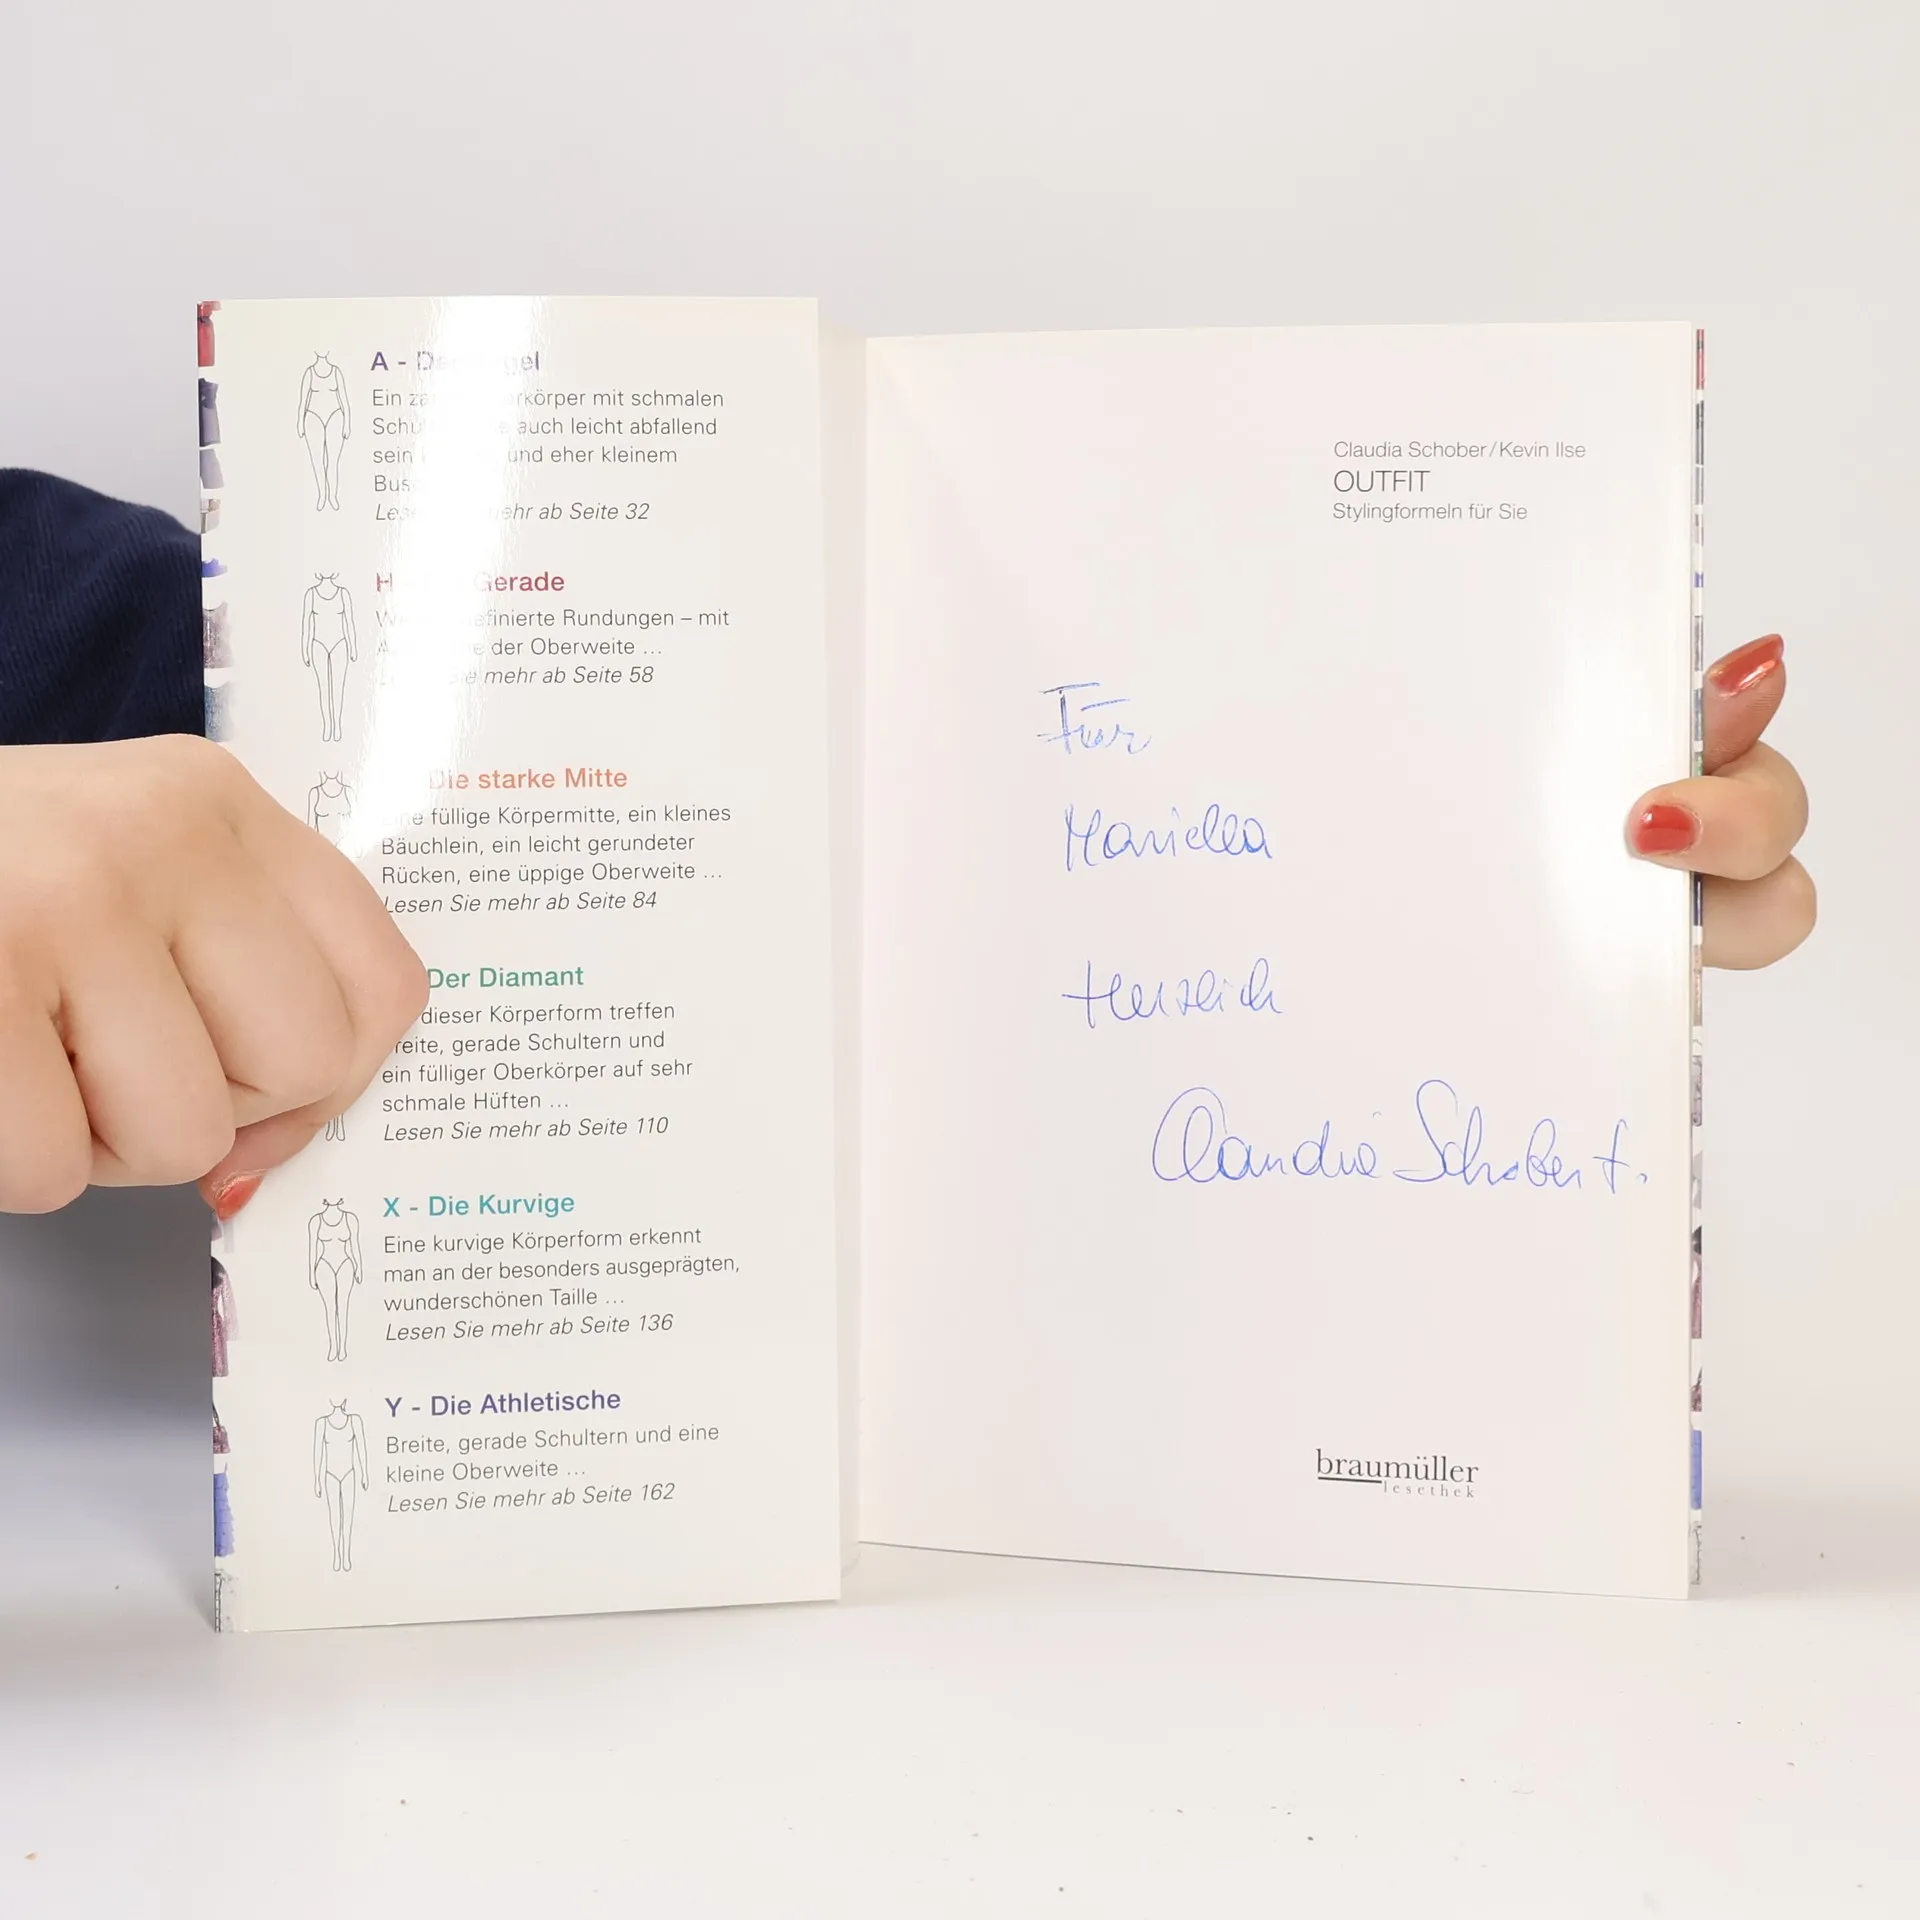 A - De gel
Ein rkörper mit schmalen
auch leicht abfallend
sein und eher kleinem
ehr ab Seite 32
H Gerade
efinierte Rundungen – mit
der Oberweite ...
mehr ab Seite 58
Die starke Mitte
füllige Körpermitte, ein kleines
Bäuchlein, ein leicht gerundeter
Rücken, eine üppige Oberweite ...
Lesen Sie mehr ab Seite 84
Der Diamant
dieser Körperform treffen
reite, gerade Schultern und
ein fülliger Oberkörper auf sehr
schmale Hüften ...
Lesen Sie mehr ab Seite 110
X - Die Kurvige
Eine kurvige Körperform erkennt
man an der besonders ausgeprägten,
wunderschönen Taille ...
Lesen Sie mehr ab Seite 136
Y - Die Athletische
Breite, gerade Schultern und eine
kleine Oberweite ...
Lesen Sie mehr ab Seite 162
Claudia Schober/Kevin Ilse
OUTFIT
Stylingformeln für Sie
Für
Mariella
Herzlich
Claudia Schober
braumüller
lesethek